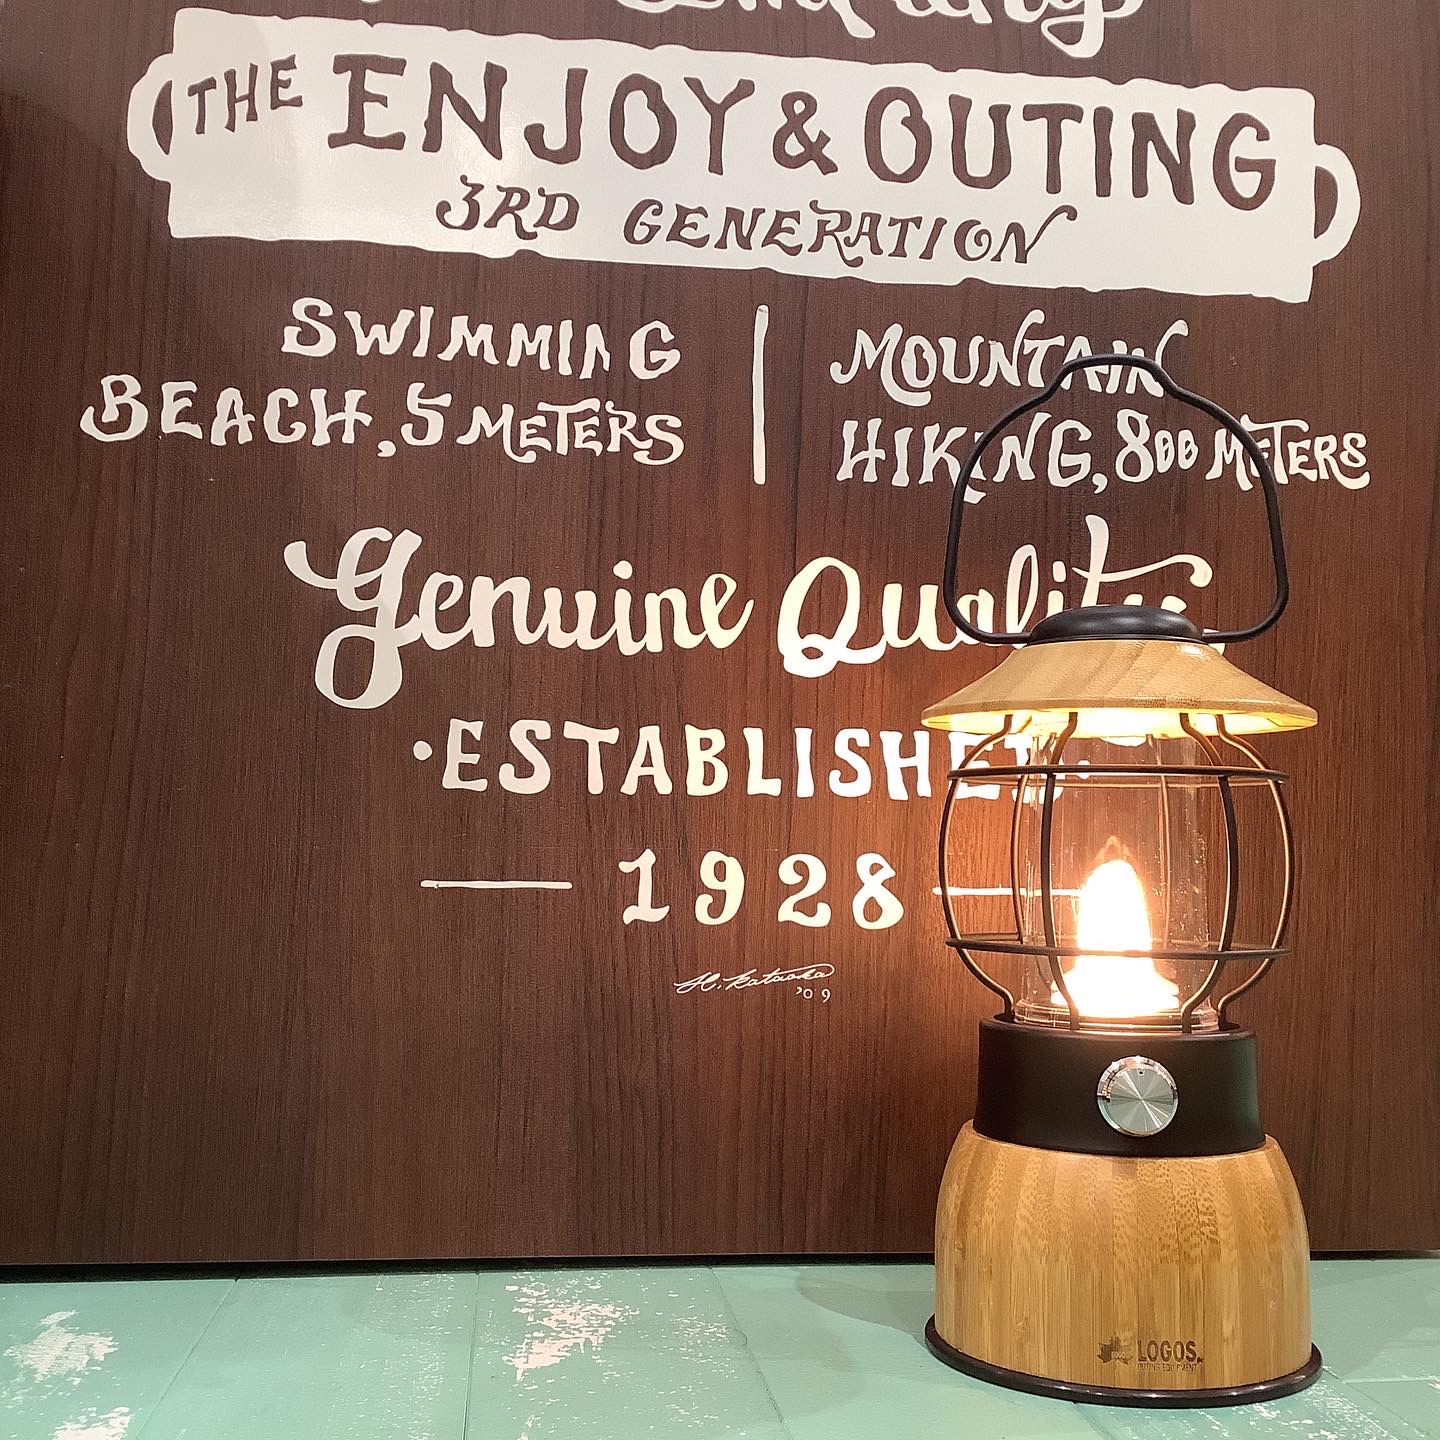 THE ENJOY & OUTING
3RD GENERATION
SWIMMING
BEACH, 5 METERS
MOUNTAIN
HIKING, 800 METERS
Genuine Quality
·ESTABLISHED·
1928
H. Kataoka
'09
LOGOS
OUTING EQUIPMENT